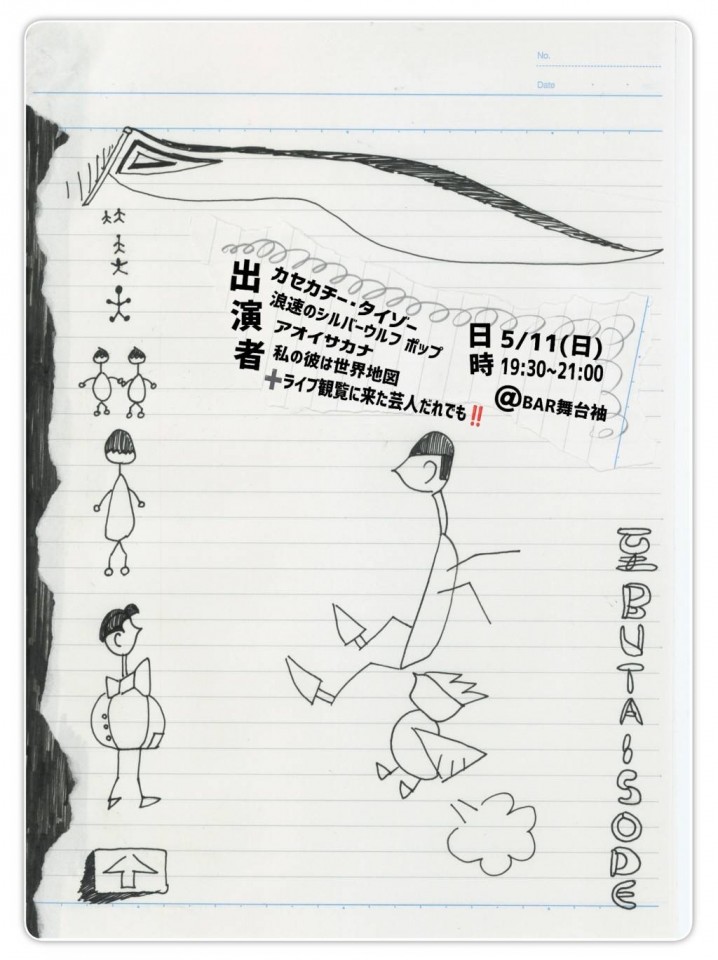 No.
Date
出演者
カセカチー・タイゾー
浪速のシルバーウルフ ポップ
アオイサカナ
私の彼は世界地図
➕ライブ観覧に来た芸人だれでも‼️
日時
5/11(日)
19:30~21:00
@BAR舞台袖
至BUTAiSODE